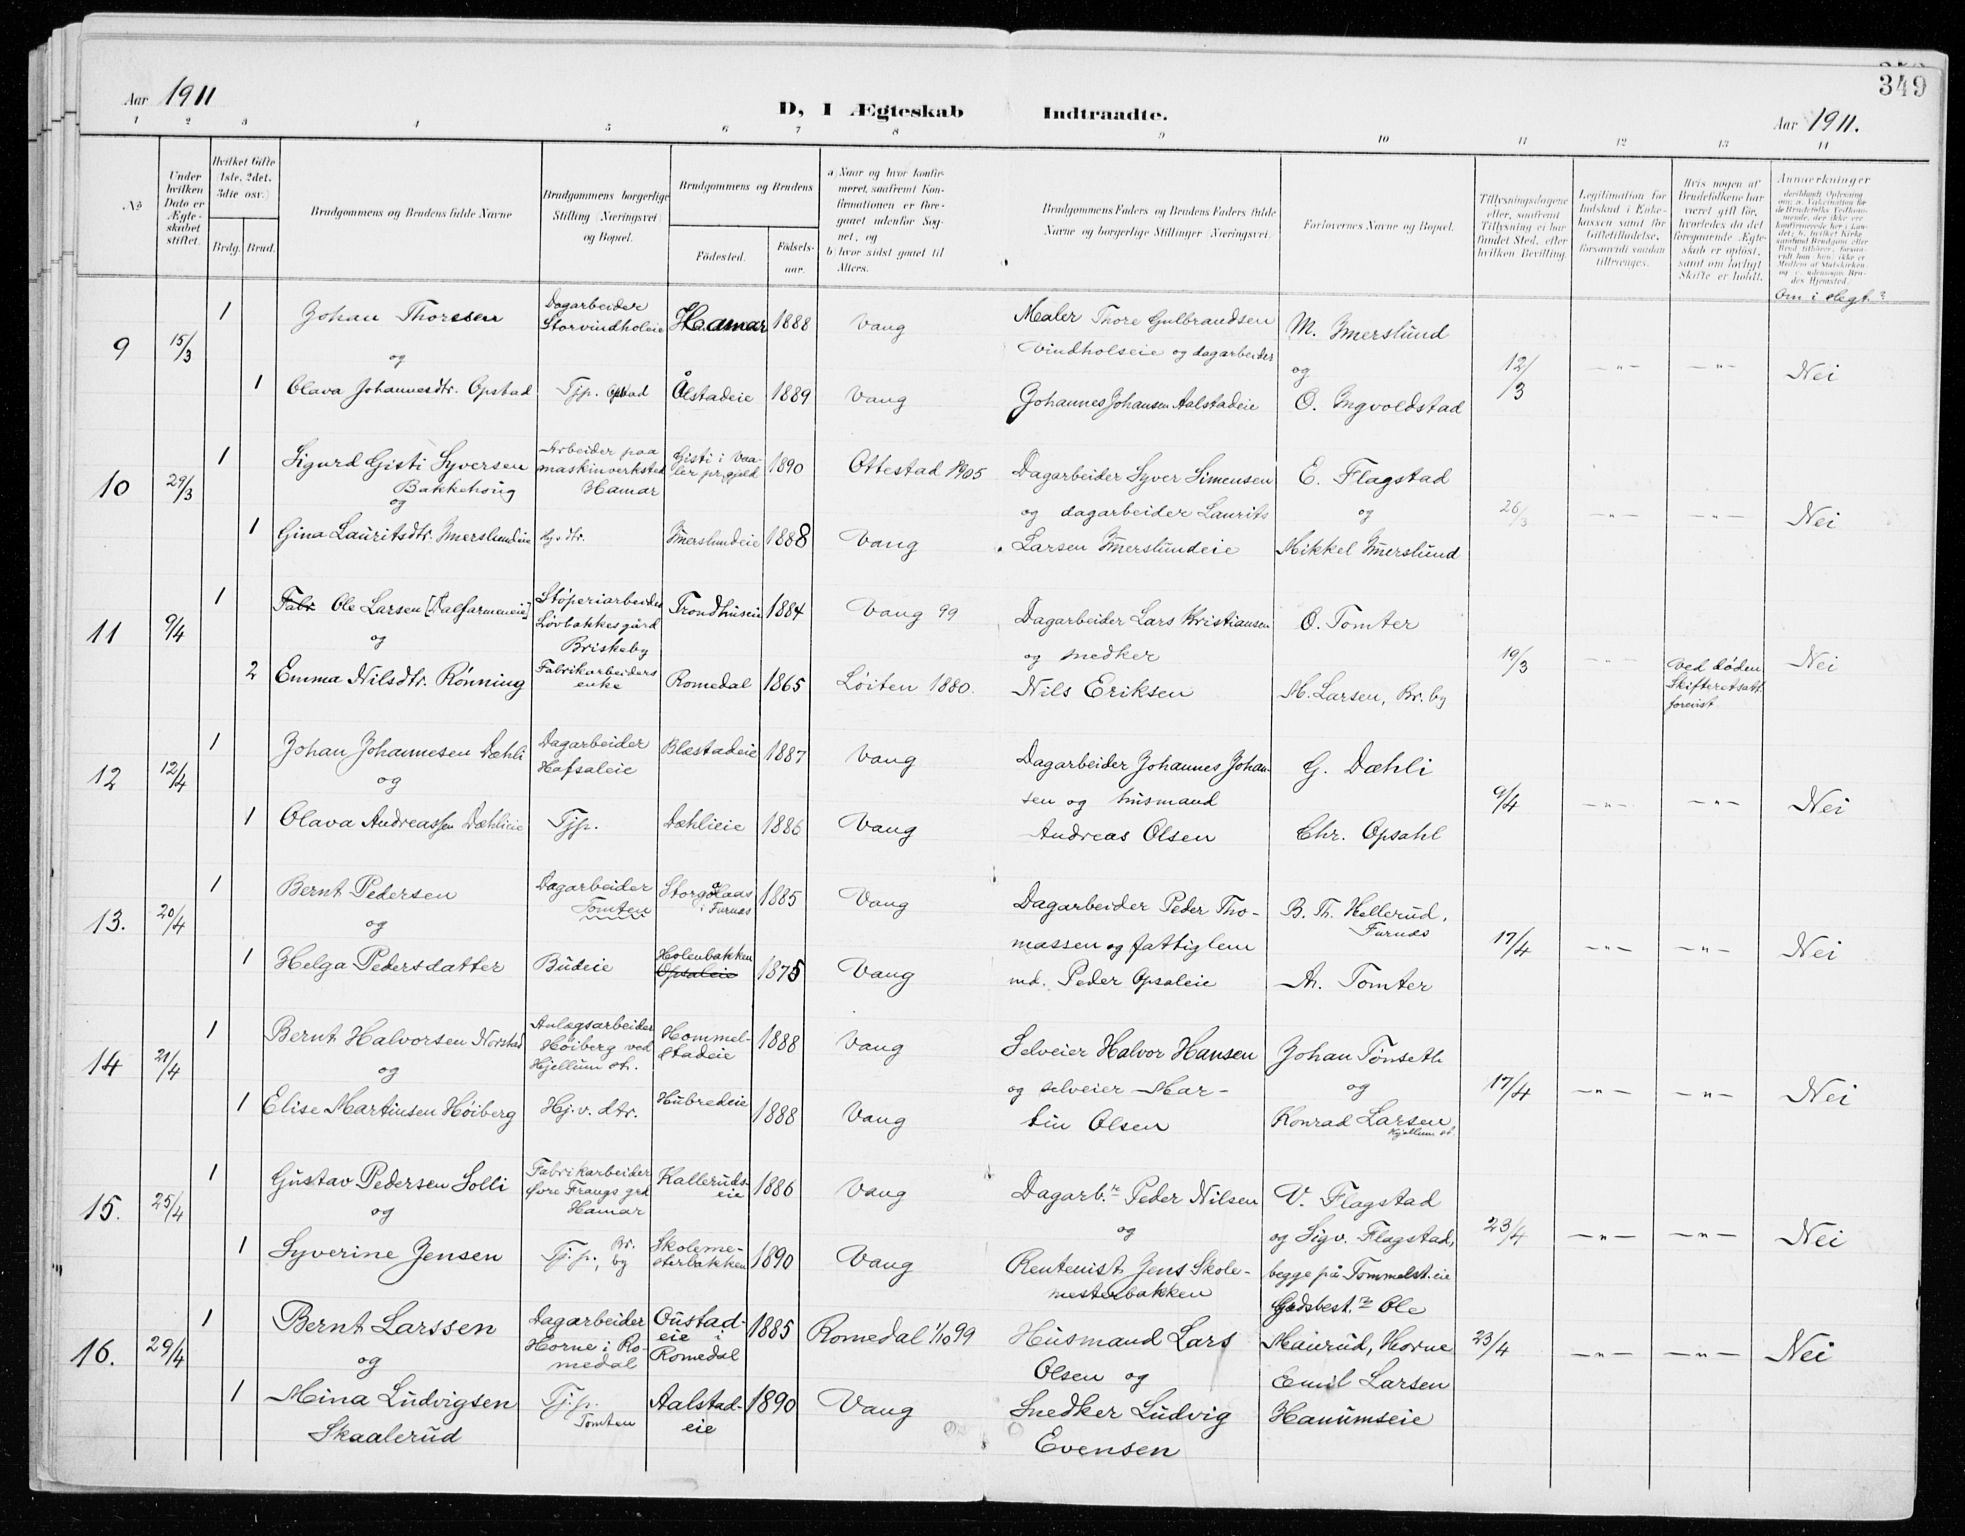 349
Aar 1911
D, I Ægteskab Indtraadte.
Aar 1911.
1 2 3 4 5 6 7 8 9 10 11 12 13 14
№
Under hvilken Dato er Ægteskabet stiftet.
Hvilket Gifte 1ste, 2det, 3die osv.
Brdg. Brud.
Brudgommens og Brudens fulde Navne
Brudgommens borgerlige Stilling (Næringsvei) og Bopæl.
Brudgommens og Brudens
Fødested.
Fødsels-aar.
a. Naar og hvor konfirmeret, saafremt Konfirmationen er foregaaet udenfor Sognet, og
b. hvor sidst gaaet til Alters.
Brudgommens Faders og Brudens Faders fulde Navne og borgerlige Stillinger (Næringsvei)
Forlovernes Navne og Bopæl.
Tillysningsdagene eller, saafremt Tillysning ei har fundet Sted, efter hvilken Bevilling.
Legitimation for Indskud i Enkekassen samt for Giftetilladelse, forsaavidt saadan tiltrænges.
Hvis nogen af Brudefolkene har været gift før, hvorledes da det foregaaende Ægteskab er opløst, samt om lovligt Skifte er holdt.
Anmærkninger
Om i slegt?
9 15/3
1 Johan Thoresen Dagarbeider Storvindholeie Hamar 1888 Vang Maler Thore Gulbrandsen M. Imerslund
og Vindholseie og dagarbeider og 12/3 —"— —"— Nei
1 Olava Johannesdtr. Opstad Tjp. Opstad Ålstadeie 1889 Vang Johannes Johansen Aalstadeie O. Ingvoldstad
10 29/3
1 Sigurd Gisti Syversen Bakkehaug Arbeider paa maskinverksted Hamar Gisti i Vaaler prgjeld 1890 Ottestad 1905 Dagarbeider Syver Simensen E. Flagstad
og og dagarbeider Laurits og 26/3 —"— —"— Nei
1 Gina Lauritsdtr. Imerslundeie Imerslundeie 1888 Vang Larsen Imerslundeie Mikkel Imerslund
11 9/4
1 Fabr. Ole Larsen Støperiarbeider Løvbakkesgård Briskeby Trondhuseie 1884 Vang 99 Dagarbeider Lars Kristiansen O. Tomter
og og snedker 19/3 —"— Ved døden Nei
2 Emma Nilsdtr. Rønning Fabrikarbeiders enke Romedal 1865 Løiten 1880. Nils Eriksen M. Larsen, Br.by
12 12/4
1 Johan Johannesen Dæhli Dagarbeider Hafsaleie Blæstadeie 1887 Vang Dagarbeider Johannes Johan- G. Dæhli
og sen og husmand 9/4 —"— —"— Nei
1 Olava Andreassen Dæhlieie Tjp. Dæhlieie 1886 Vang Andreas Olsen Chr. Opsahl
13. 20/4
1 Bernt Pedersen Dagarbeider Tomten i Furnæs 1885 Vang Dagarbeider Peder Tho- B. Th. Hellerud, Furnæs
og massen og fattiglem 17/4 —"— —"— Nei
1 Helga Pedersdatter Budeie Holenbakken Opsaleie 1875 Vang md. Peder Opsaleie A. Tomter
14 21/4
1 Bernt Halvorsen Norstad Anlægsarbeider Høiberg ved Hjellum st. Hommelstadeie 1888 Vang Selveier Halvor Hansen Johan Tønseth
og og selveier Mar- og 17/4 —"— —"— Nei
1 Elise Martinsen Høiberg Hj.v. dtr. Hubredeie 1888 Vang tin Olsen Konrad Larsen Hjellum st.
15. 25/4
1 Gustav Pedersen Solli Fabrikarbeider Øvre Frangs grd Hamar Kallerudseie 1886 Vang Dagarb.r Peder Nilsen V. Flagstad
og og og Sigv. Flagstad, 23/4 —"— —"— Nei
1 Syverine Jensen Tj.p., Br. by Skolemesterbakken 1890 Vang Rentenist Jens Skolemesterbakken begge på Tommelst.eie
16. 29/4
1 Bernt Larssen Dagarbeider Horne i Romedal Gustadeie i Romedal 1885 Romedal 1/10 99 Husmand Lars Gårdsbest.r Ole Mairud, Horne 23/4 —"— —"— Nei
og Olsen og Emil Larsen
1 Mina Ludvigsen Skaalerud Tj.p. Tomten Aalstadeie 1890 Vang Snedker Ludvig Evensen Hanumseie